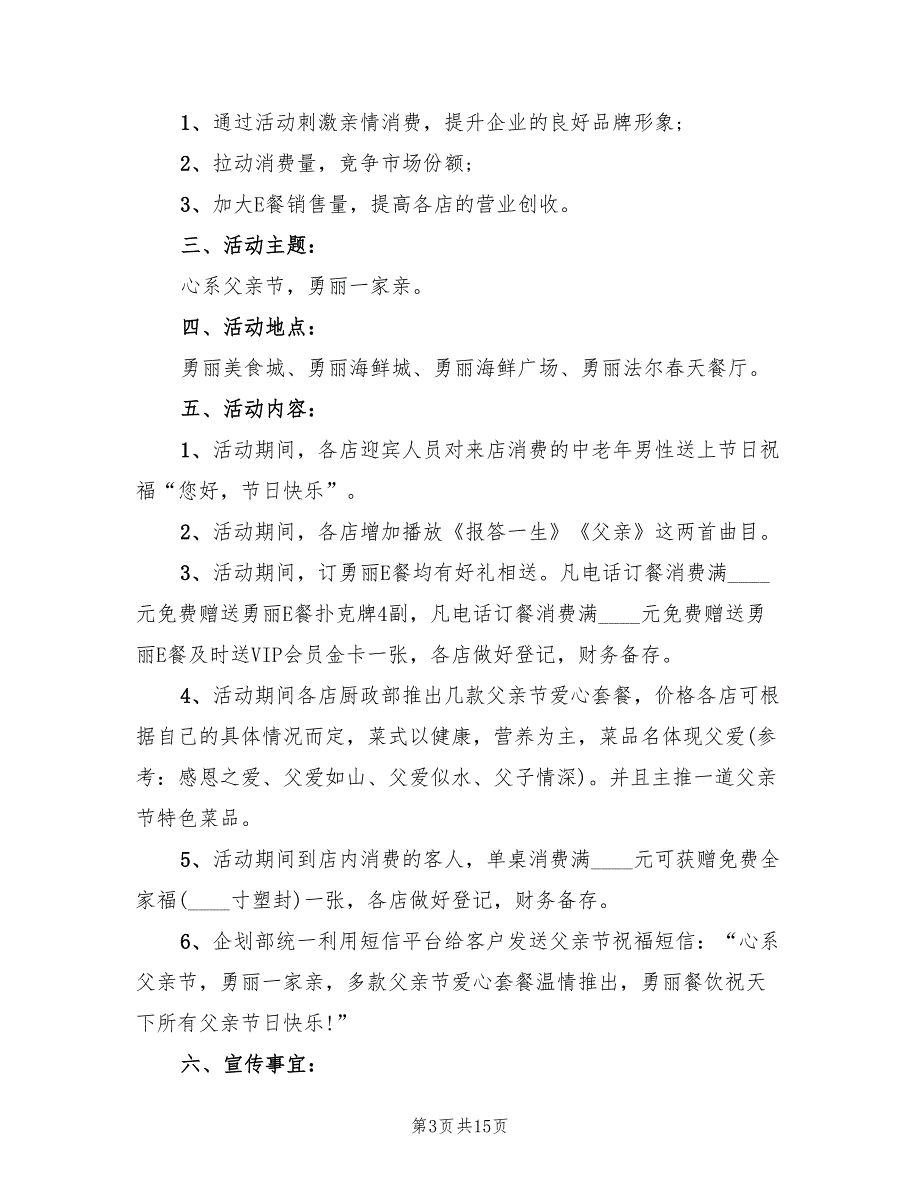 1、通过活动刺激亲情消费，提升企业的良好品牌形象;
2、拉动消费量，竞争市场份额;
3、加大E餐销售量，提高各店的营业创收。
三、活动主题：
心系父亲节，勇丽一家亲。
四、活动地点：
勇丽美食城、勇丽海鲜城、勇丽海鲜广场、勇丽法尔春天餐厅。
五、活动内容：
1、活动期间，各店迎宾人员对来店消费的中老年男性送上节日祝
福“您好，节日快乐”。
2、活动期间，各店增加播放《报答一生》《父亲》这两首曲目。
3、活动期间，订勇丽E餐均有好礼相送。凡电话订餐消费满____
元免费赠送勇丽E餐扑克牌4副，凡电话订餐消费满____元免费赠送勇
丽E餐及时送VIP会员金卡一张，各店做好登记，财务备存。
4、活动期间各店厨政部推出几款父亲节爱心套餐，价格各店可根
据自己的具体情况而定，菜式以健康，营养为主，菜品名体现父爱(参
考：感恩之爱、父爱如山、父爱似水、父子情深)。并且主推一道父亲
节特色菜品。
5、活动期间到店内消费的客人，单桌消费满____元可获赠免费全
家福(____寸塑封)一张，各店做好登记，财务备存。
6、企划部统一利用短信平台给客户发送父亲节祝福短信：“心系
父亲节，勇丽一家亲，多款父亲节爱心套餐温情推出，勇丽餐饮祝天
下所有父亲节日快乐!”
六、宣传事宜：
第3页共15页